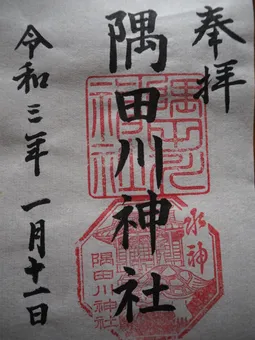 奉拝
隅田川神社
令和三年 一月十一日
隅田川神社
水神
隅田川神社